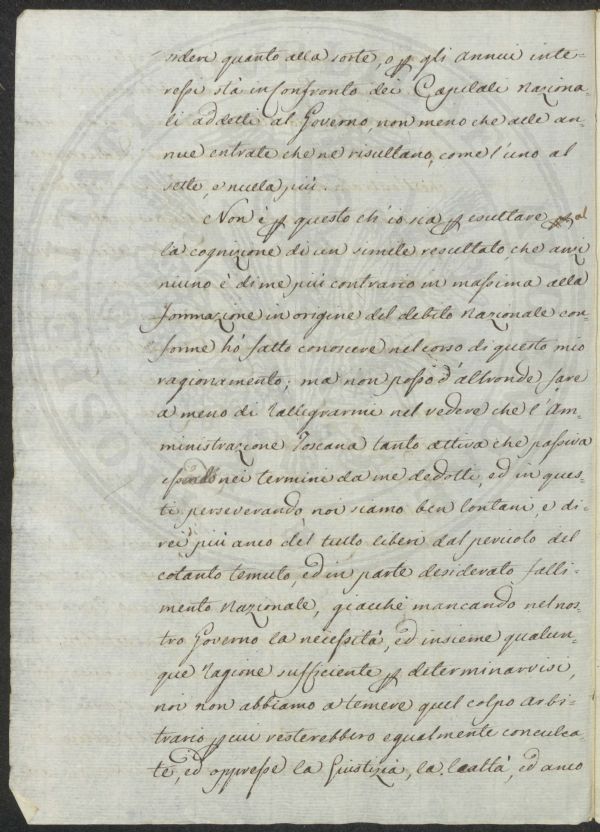 sideri quanto alla sorte, o p gli annui inte-
ressi stà in confronto dei Capitali Naziona-
li addetti al Governo, non meno che alle an-
nue entrate che ne risultano, come l'uno al
sette, e nulla più.
Non è p questo ch'io sia p esultare al-
la cognizione di un simile resultato, che anzi
niuno è di me più contrario in massima alla
formazione in origine del debito Nazionale con-
forme hò fatto conoscere nel corso di questo mio
ragionamento; ma non posso d'altronde fare
a meno di rallegrarmi nel vedere che l'Am-
ministrazione Toscana tanto attiva che passiva
essendo nei termini da me dedotti, ed in ques-
ti perseverando, noi siamo ben lontani, e di-
rei più anco del tutto liberi dal pericolo del
cotanto temuto, ed in parte desiderato falli-
mento Nazionale, giacchè mancando nel nos-
tro Governo la necessità, ed insieme qualun-
que ragione sufficiente p determinarvisi,
noi non abbiamo a temere quel colpo arbi-
trario p cui resterebbero egualmente conculca-
te, ed oppresse la Giustizia, la lealtà, ed anco